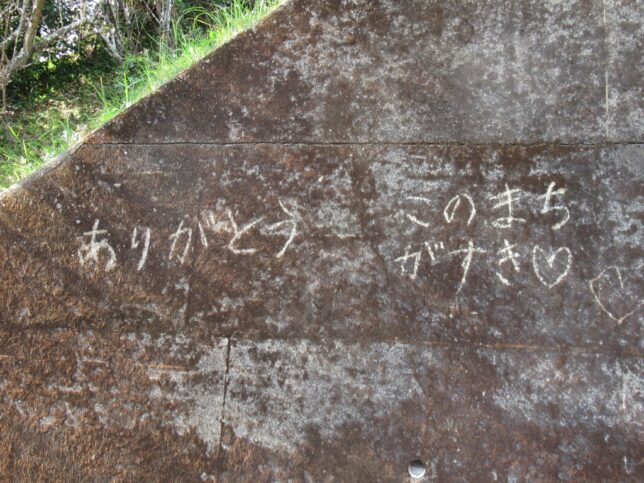 ありがとう
このまち
がすき♡♡